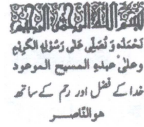 بسم الله الرحمن الرحيم
نحمده و نصلی علی رسوله الکریم
وعلیٰ عبده المسیح الموعود
خدا کے فضل اور رحم کے ساتھ
هو النّاصر